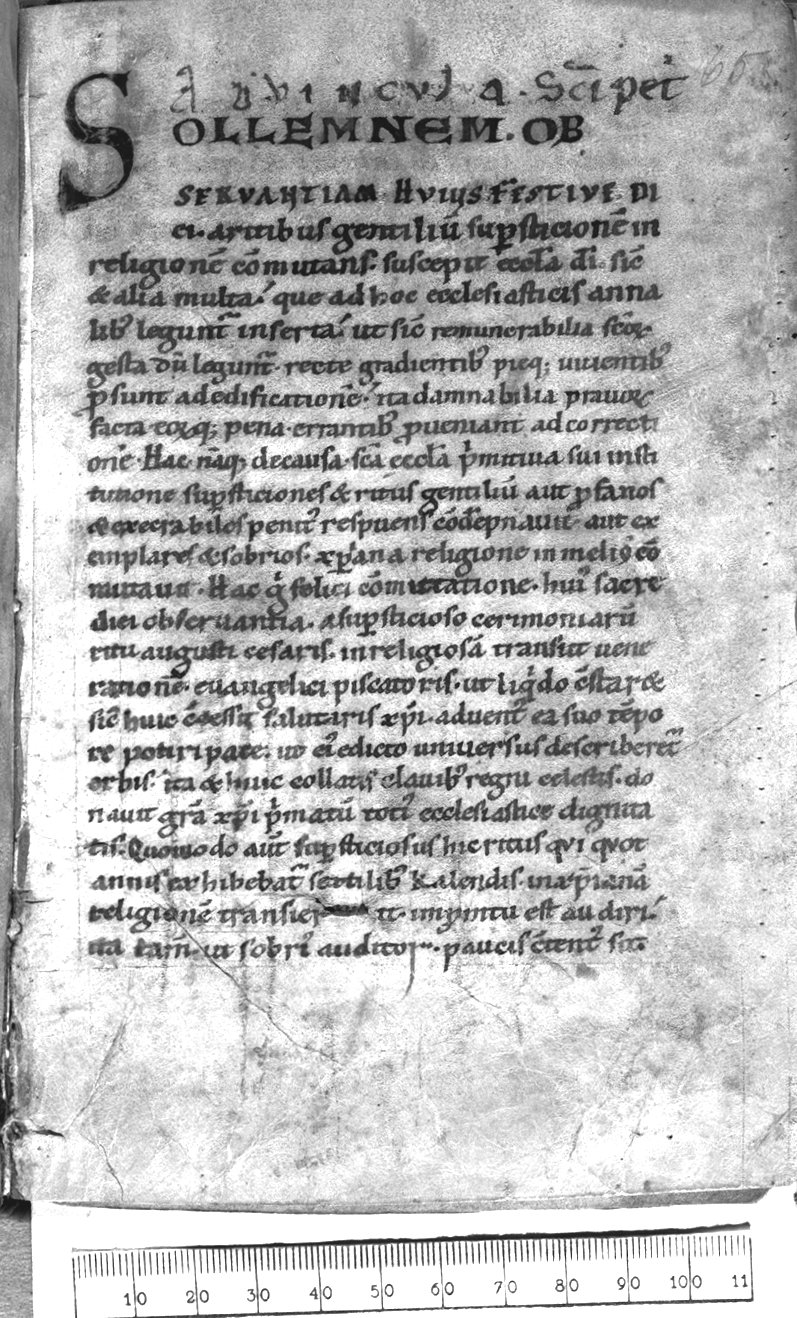 Ad vincula. Sc̄i petͥ 65.
SOLLEMNEM. OB
SERVANTIAM HVIꝰ FESTIVE DI
ei. a ritibus gentiliū suꝑsticionē in
religionē cōmutans. suscepit eccl̄a dī. sic̄
& alia multa. que ad hoc ecclesiasticis anna
libꝰ legunt᷑ inserta. ut sic̄ remunerabilia sc̄oꝝ
gesta dū legunt᷑. recte gradientibꝰ pieq; uiuentibꝰ
ꝓsunt ad edificationē. ita damnabilia prauoꝝ
facta eoꝝq; pena. errantibꝰ ꝓueniant ad correcti
onē. Hac nāq; de causa. sc̄a eccl̄a pͥmitiua sui insti
tutione suꝑsticiones & ritus gentiliū aut ꝓfanos
& execrabiles penitꝰ respuens cōdēpnauit. aut ex
emplares & sobrios. xp̄iana religione in meliꝰ cō
mutauit. Hac gͥ felici cōmutatione. huiꝰ sacre
diei obseruantia. a suꝑsticioso cerimoniarū
ritu augusti cesaris. in religiosā transiit uene
rationē. euangelici piscatoris. ut liqͥdo c̄star&
sic̄ huic c̄cessit salutaris xp̄i aduentꝰ ea suo tēpo
re potiri pace. ut eiꝰ edicto uniuersus describeret᷑
orbis. ita & huic collatis clauibꝰ regni celestis. do
nauit gr̄a xp̄i pͥmatū totiꝰ ecclesiastice dignita
tis. Quomodo aut̄ suꝑsticiosus hic ritus qui quot
annis exhibebat᷑ sextilibꝰ kalendis. in xp̄ianā
religionē transierit. in pͥmptu est audiri.
ita tam̄. ut sobriꝰ auditor. paucis c̄tentꝰ sit